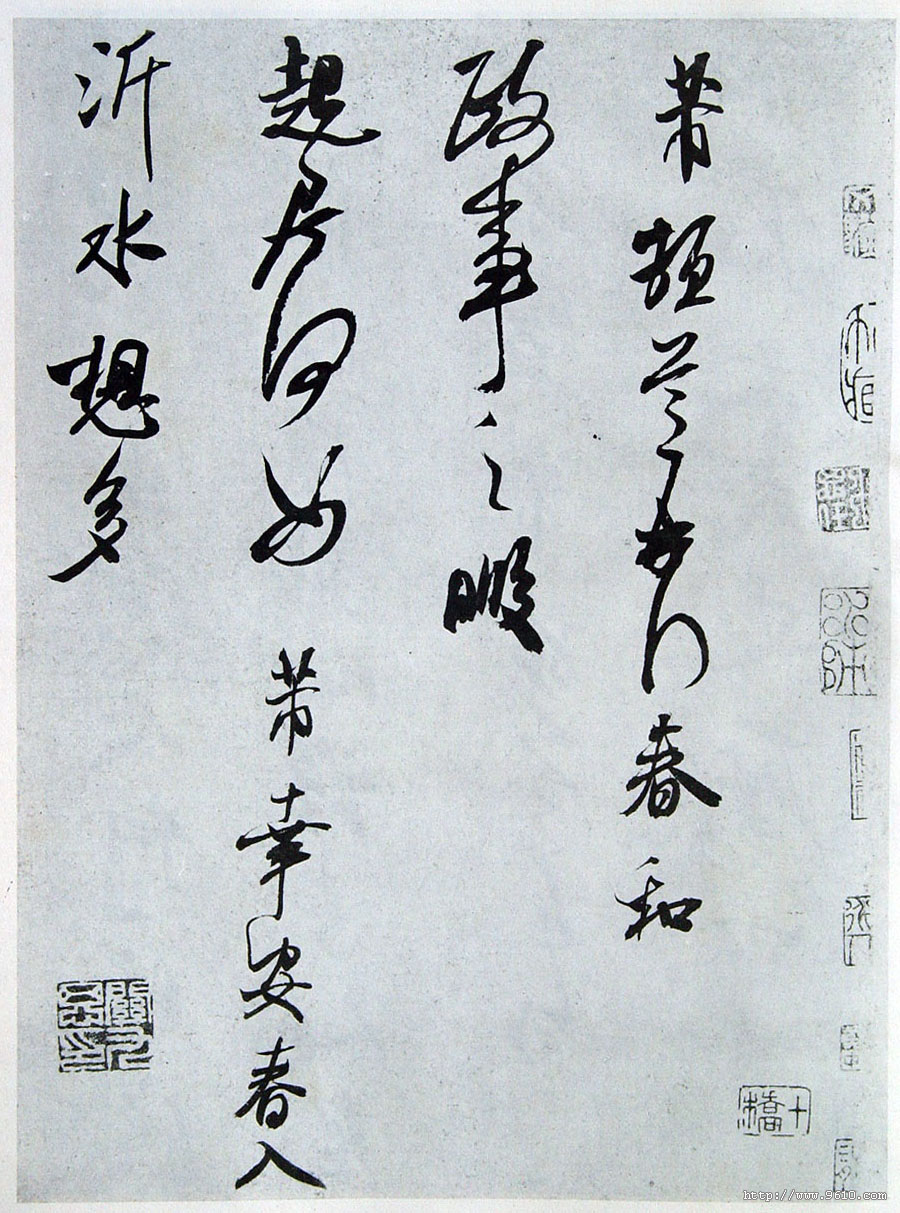 芾頓首再拜春和
政事之暇
起居何如芾幸安春入
沂水想多
關九思印
http://www.9610.com